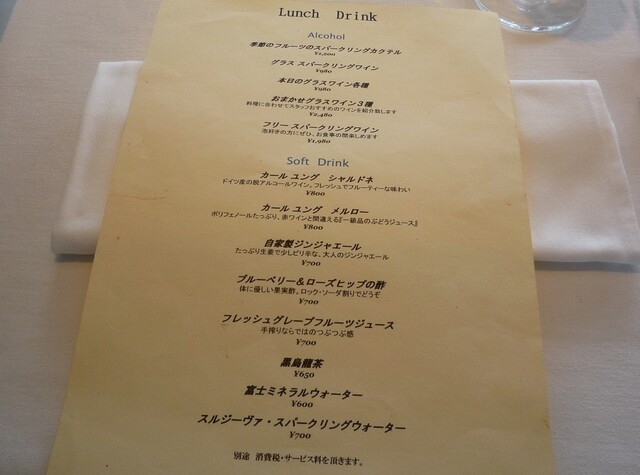 Lunch Drink
Alcohol
季節のフルーツのスパークリングカクテル
¥1,200
グラス スパークリングワイン
¥980
本日のグラスワイン各種
¥980
おまかせグラスワイン３種
料理に合わせてスタッフおすすめのワインを紹介致します
¥2,480
フリー スパークリングワイン
泡好きの方にぜひ、お食事の間楽しめます
¥1,980
Soft Drink
カール ユング シャルドネ
ドイツ産の脱アルコールワイン。フレッシュでフルーティーな味わい
¥800
カール ユング メルロー
ポリフェノールたっぷり、赤ワインと間違える『一級品のぶどうジュース』
¥800
自家製ジンジャエール
たっぷり生姜で少しピリ辛な、大人のジンジャエール
¥700
ブルーベリー＆ローズヒップの酢
体に優しい果実酢。ロック・ソーダ割りでどうぞ
¥700
フレッシュグレープフルーツジュース
手搾りならではのつぶつぶ感
¥700
黒烏龍茶
¥650
富士ミネラルウォーター
¥600
スルジーヴァ・スパークリングウォーター
¥700
別途 消費税・サービス料を頂きます。